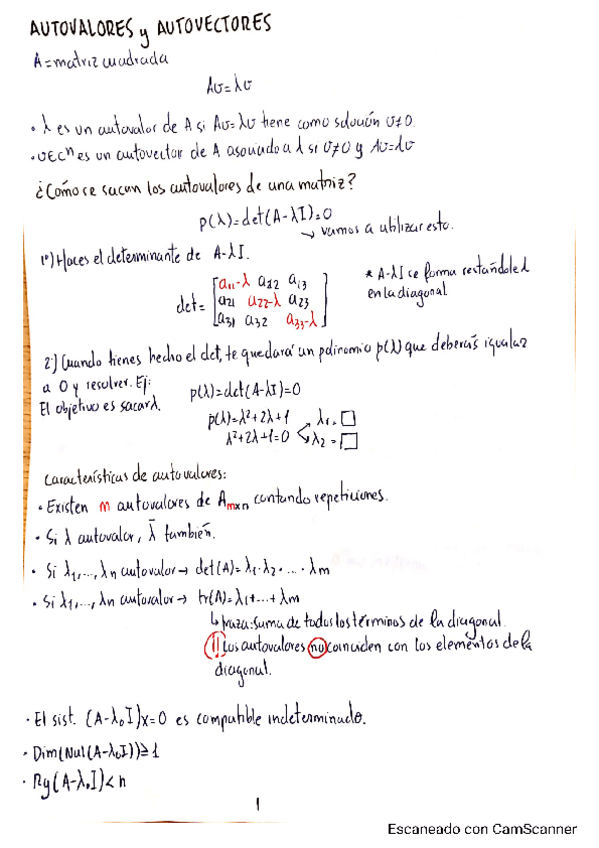 AUTOVALORES y AUTOVECTORES
A = matriz cuadrada
Av = λv
· λ es un autovalor de A si Av = λv tiene como solución v≠0.
· v∈ℂⁿ es un autovector de A asociado a λ si v≠0 y Av=λv
¿Cómo se sacan los autovalores de una matriz?
p(λ) = det(A-λI) = 0
↳ vamos a utilizar esto.
1º) Haces el determinante de A-λI.
a₁₁-λ a₁₂ a₁₃
det = a₂₁ a₂₂-λ a₂₃
a₃₁ a₃₂ a₃₃-λ
* A-λI se forma restándole λ
en la diagonal
2º) Cuando tienes hecho el det, te quedará un polinomio p(λ) que deberás igualar
a 0 y resolver. Ej:
El objetivo es sacar λ.
p(λ) = det(A-λI) = 0
p(λ) = λ²+2λ+1
λ²+2λ+1=0
λ₁ = □
λ₂ = □
Características de autovalores:
· Existen m autovalores de Amxn contando repeticiones.
· Si λ autovalor, λ̄ también.
· Si λ₁,...,λn autovalor → det(A) = λ₁·λ₂·...·λm
· Si λ₁,...,λn autovalor → tr(A) = λ₁+...+λm
↳ traza: suma de todos los términos de la diagonal.
!! Los autovalores no coinciden con los elementos de la
diagonal.
· El sist. (A-λ₀I)x=0 es compatible indeterminado.
· Dim(Nul(A-λ₀I)) ≥ 1
· Rg(A-λ₀I) < n
1
Escaneado con CamScanner